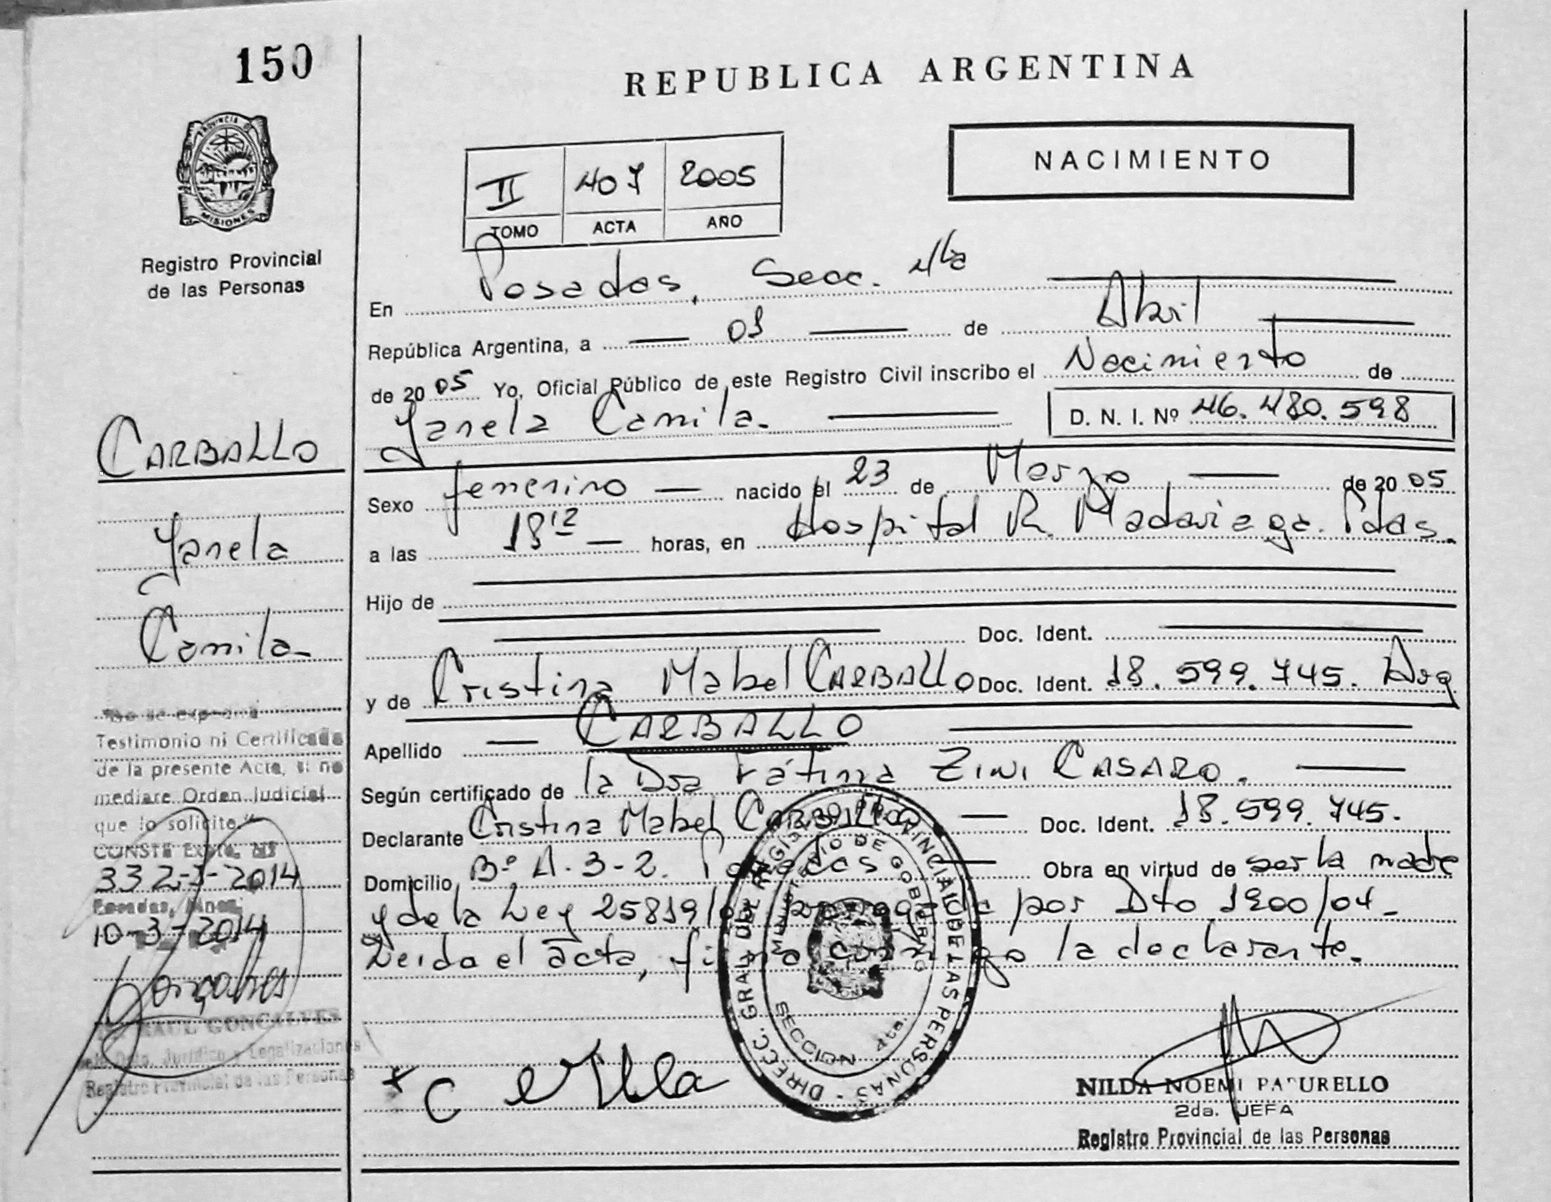 150
REPUBLICA ARGENTINA
PROVINCIA DE
MISIONES
Registro Provincial
de las Personas
II 407 2005
TOMO ACTA AÑO
NACIMIENTO
En Posadas, Secc. 4ta
República Argentina, a 01 de Abril
de 2005 Yo, Oficial Público de este Registro Civil inscribo el Nacimiento de
Yanela Camila. D. N. I. Nº 46.480.598
Sexo femenino nacido el 23 de Marzo de 2005
a las 18 12 horas, en Hospital R. Madariaga. Pdas.
Hijo de
Doc. Ident.
y de Cristina Mabel CARBALLO Doc. Ident. 18.599.745. Arg
Apellido CARBALLO
Según certificado de la Dra Fátima ZINI CASARO.
Declarante Cristina Mabel CARBALLO Doc. Ident. 18.599.745.
Domicilio Bº A.3-2. Posadas Obra en virtud de ser la madre
y de la Ley 25819/ por Dto 1900/04-
Leida el acta, firma conmigo la declarante.
CARBALLO
Yanela
Camila
"No se expedirá
Testimonio ni Certificado
de la presente Acta, si no
mediare Orden Judicial
que lo solicite."
CONSTE Expte. Nº
332-J-2014
Posadas, Mnes.
10-3-2014
RAUL GONCALVES
Dpto. Jurídico y Legalizaciones
Registro Provincial de las Personas
DIREC. GRAL. DEL REGISTRO PROVINCIAL DE LAS PERSONAS
MINISTERIO DE GOBIERNO
SECCION 4ta.
NILDA NOEMI PATURELLO
2da. JEFA
Registro Provincial de las Personas